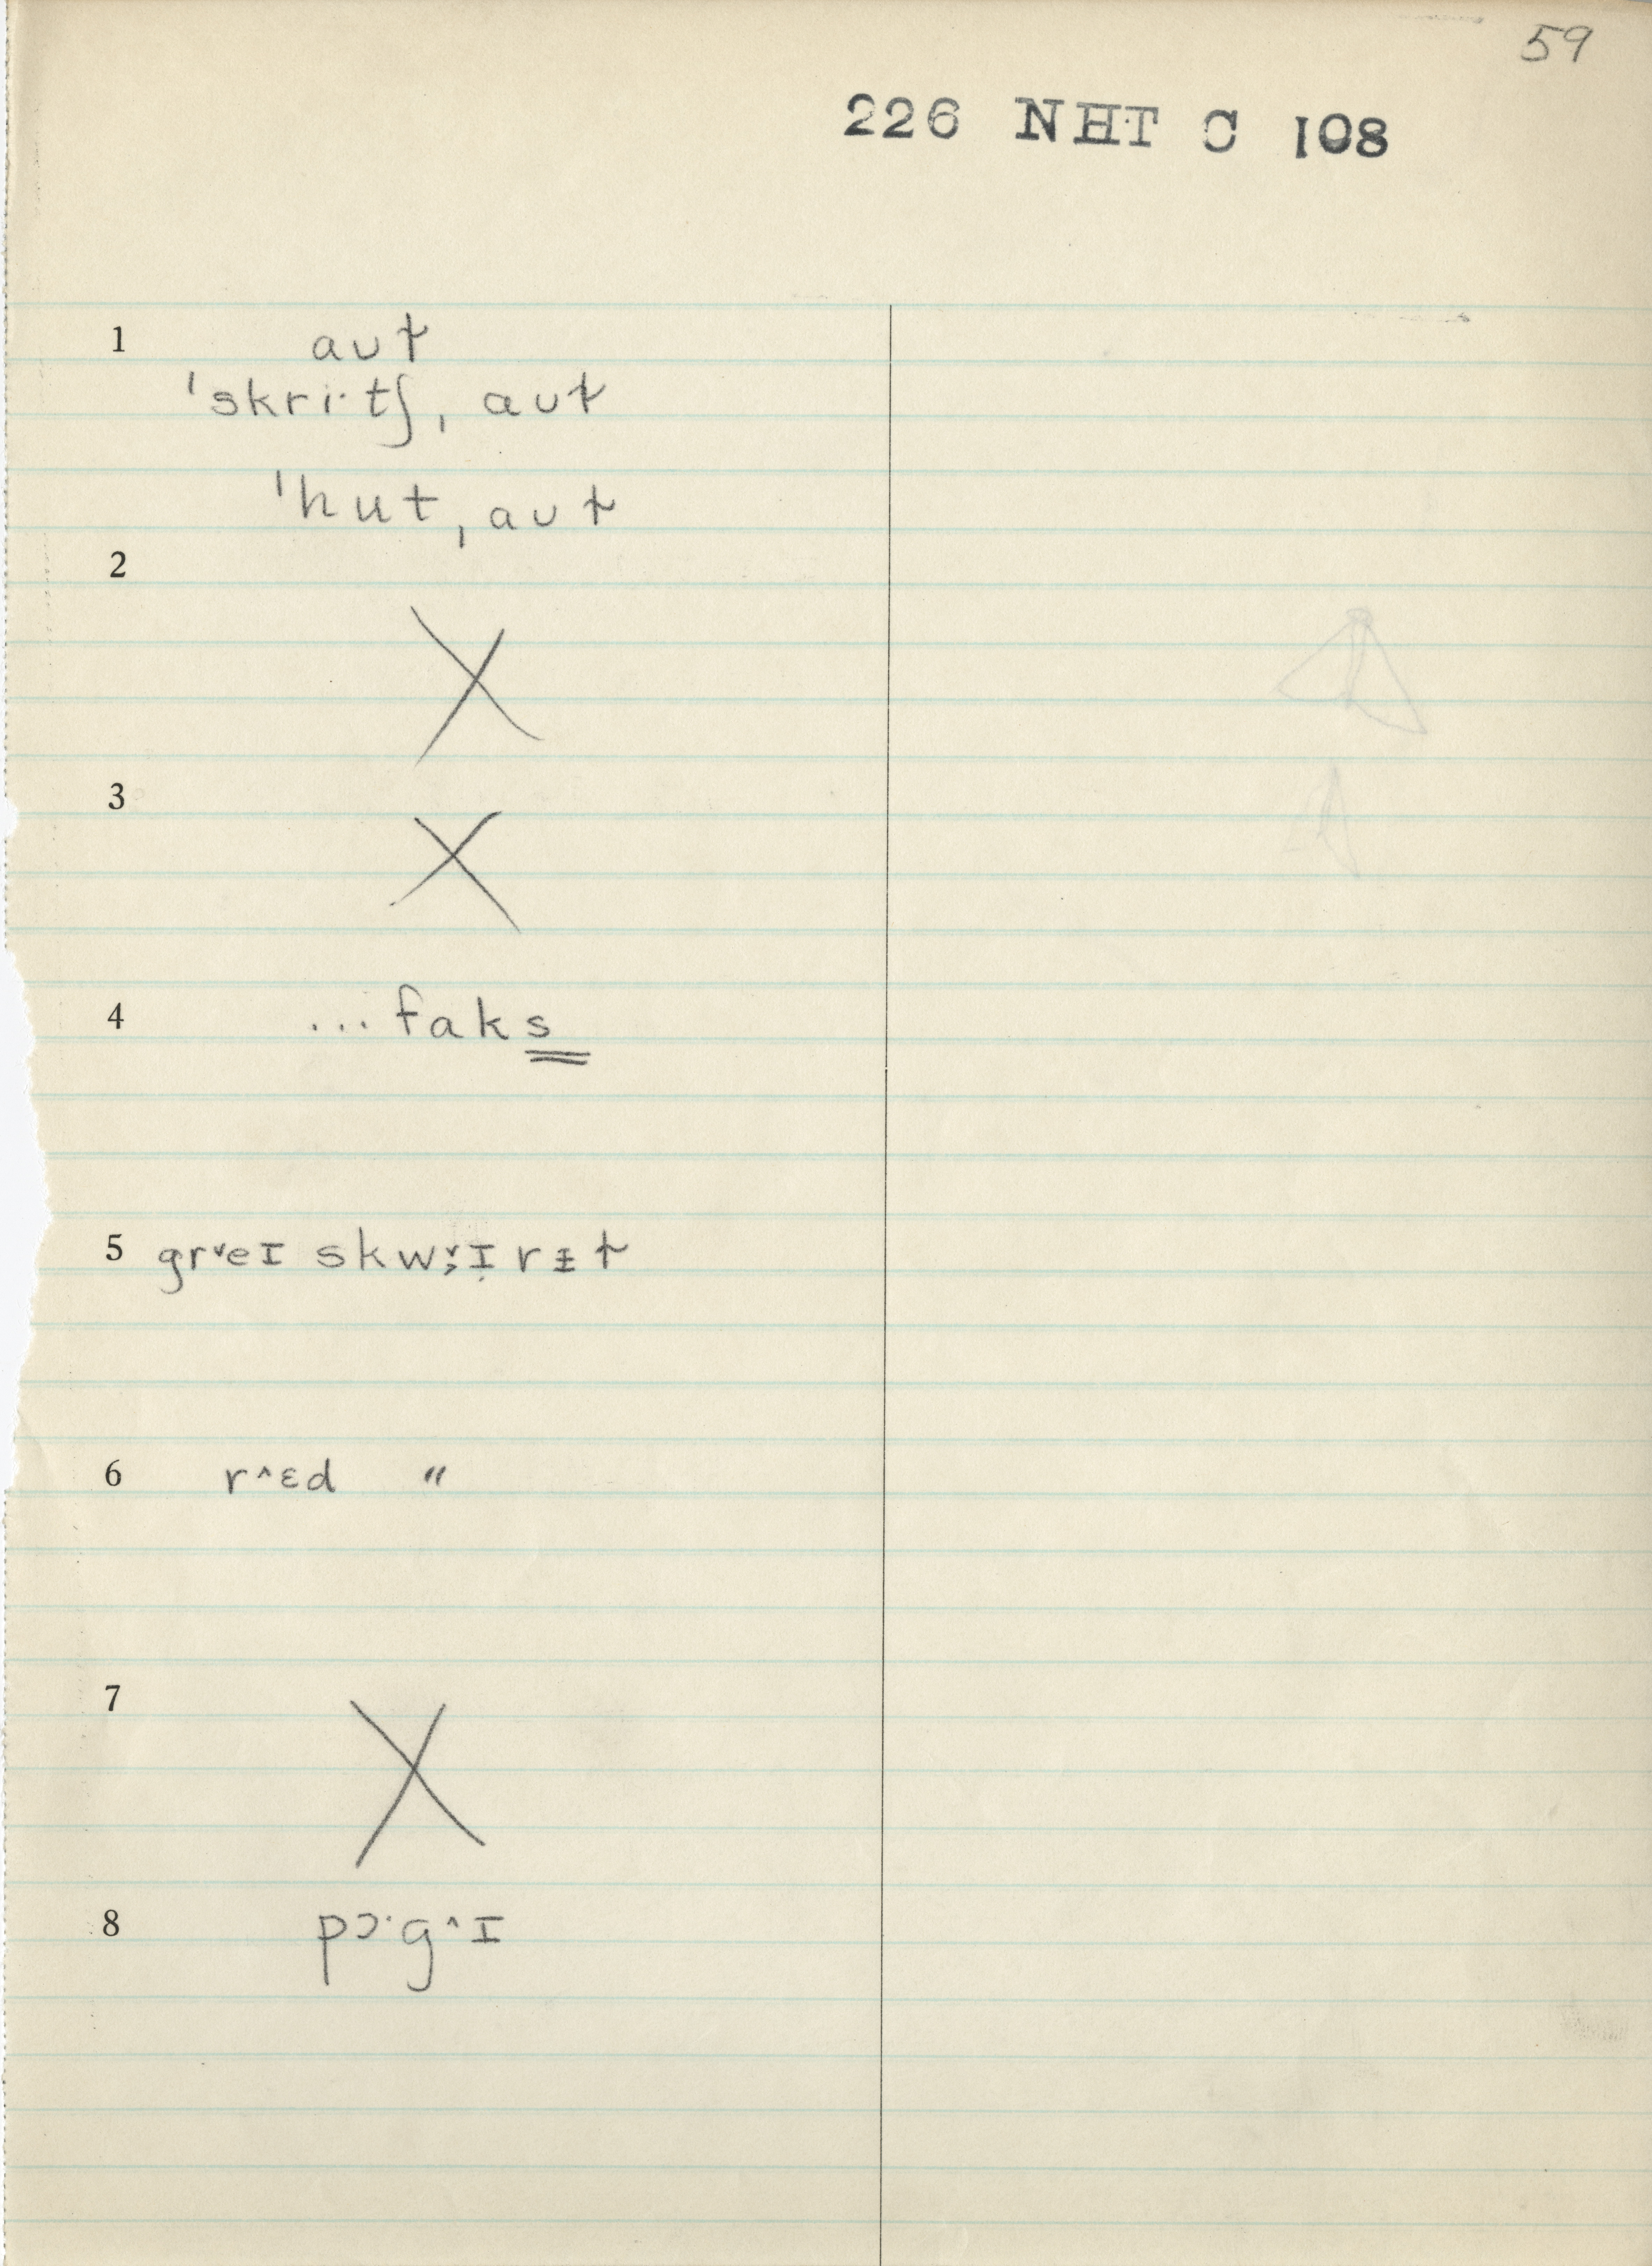 59
226 NHT C 108
1 aʊɫ
ˈskri·tʃˌaʊɫ
ˈhutˌaʊɫ
2
X
3
X
4 ...faks
5 gr˅eɪ skwɜ˞˅ɪ̣rɪ̵ɫ
6 r˄ɛd "
7
X
8 pɔ·g˄ɪ